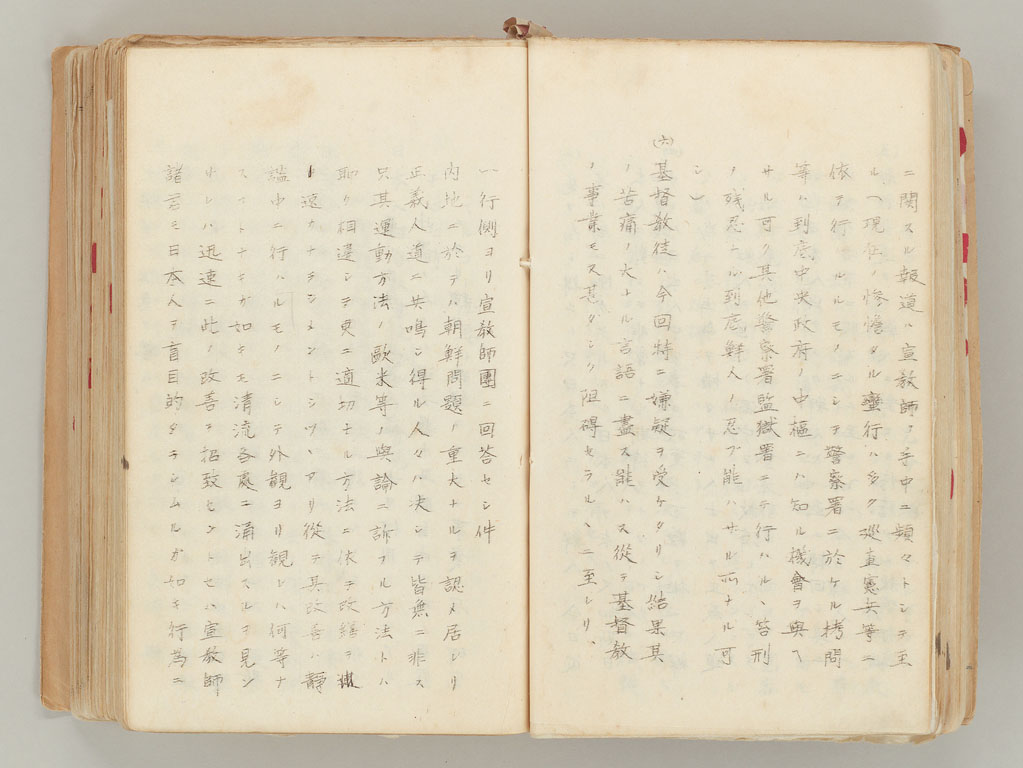 ニ関スル報道ハ宣教師ノ手中ニ頻々トシヲ至
ル(現在ノ惨憺タル蛮行ハ多ク巡査憲兵等ニ
依ヲ行ハルルモノニシヲ警察署ニ於ケル拷問
等ハ到底中央政府ノ中樞ニハ知ル機會ヲ與ヘ
サル可ク其他警察署監獄署ニテ行ハルヽ笞刑
ノ残忍ニハ到底鮮人ノ忍ブ能ハサル所ナル可
シ)
(六)基督教徒ハ今回特ニ嫌疑ヲ受ケタリシ結果其
ノ苦痛ノ大ナル言語ニ盡ス能ハス從テ基督教
ノ事業モ又甚タシク阻碍セラルヽニ至レリ、
一行側ヨリ宣教師團ニ回答セシ件
内地ニ於テハ朝鮮問題ノ重大ナルヲ認メ居レリ
正義人道ニ共鳴シ得ル人々ハ決シテ皆無ニ非ス
只其運動方法ノ歐米等ノ輿論ニ訴フル方法トハ
恥り相違シテ更ニ適切ナル方法ニ依テ改繕ヲ
ト遠カナラシメントシツヽアリ從テ其改善ハ靜
謐中ニ行ハルモノニシテ外観ヨリ観レハ何等ナ
スコトナキガ如キモ清流各處ニ涌出スルヲ見ン
サレハ迅速ニ此ノ改善ヲ招致セントセハ宣教師
諸君モ日本人ヲ盲目的タラシムルガ如キ行為ニ